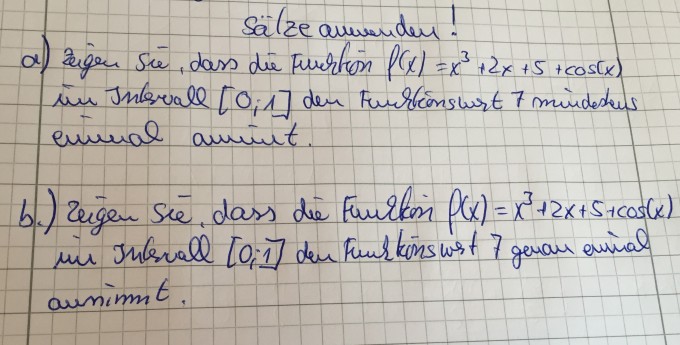 Sätze anwenden!
a) Zeigen Sie, dass die Funktion f(x) = x³ + 2x + 5 + cos(x)
im Intervall [0;1] den Funktionswert 7 mindestens
einmal annimt.
b.) Zeigen Sie, dass die Funktion f(x) = x³ + 2x + 5 + cos(x)
im Intervall [0;1] den Funktionswert 7 genau einmal
annimmt.